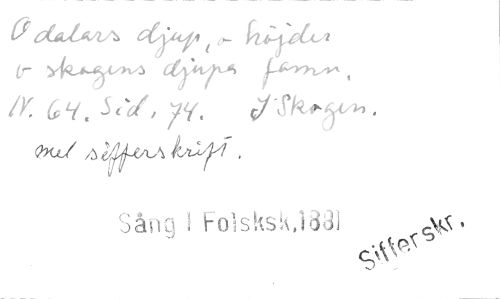 O dalars djup, o höjder
o skogens djupa famn.
N. 64. Sid. 74. I Skogen.
mel sifferskrift.
Sång I Folsksk,1881
Sifferskr.